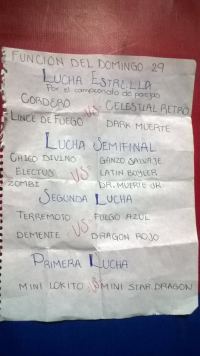 FUNCION DEL DOMINGO 29
LUCHA ESTRELLA
Por el campeonato de parejas
CORDERO VS CELESTIAL RETRO
LINCE DE FUEGO DARK MUERTE
LUCHA SEMIFINAL
CHICO DIVINO GANZO SALVAJE
ELECTUS VS LATIN BOYLER
ZOMBI DR. MUERTE JR.
SEGUNDA LUCHA
TERREMOTO FUEGO AZUL
VS
DEMENTE DRAGON ROJO
PRIMERA LUCHA
MINI LOKITO VS MINI STAR DRAGON